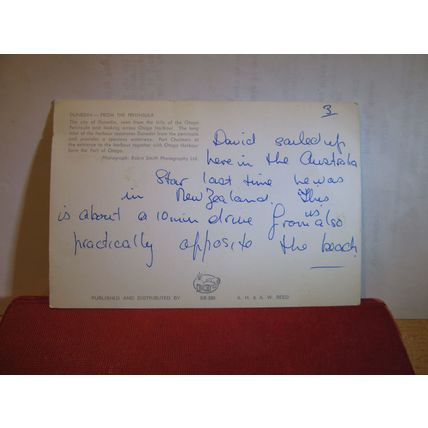 3
DUNEDIN — FROM THE PENINSULA
The city of Dunedin, seen from the hills of the Otago
Peninsula and looking across Otago Harbour. The long
inlet of the harbour separates Dunedin from the peninsula
and provides a spacious waterway. Port Chalmers at
the entrance to the harbour together with Otago Harbour
form the Port of Otago.
Photograph: Robin Smith Photography Ltd.
David sailed up
here in the Australia
Star last time he was
in New Zealand. This
is about a 10 min drive from us also
practically opposite the beach
PUBLISHED AND DISTRIBUTED BY
A. H. & A. W. REED